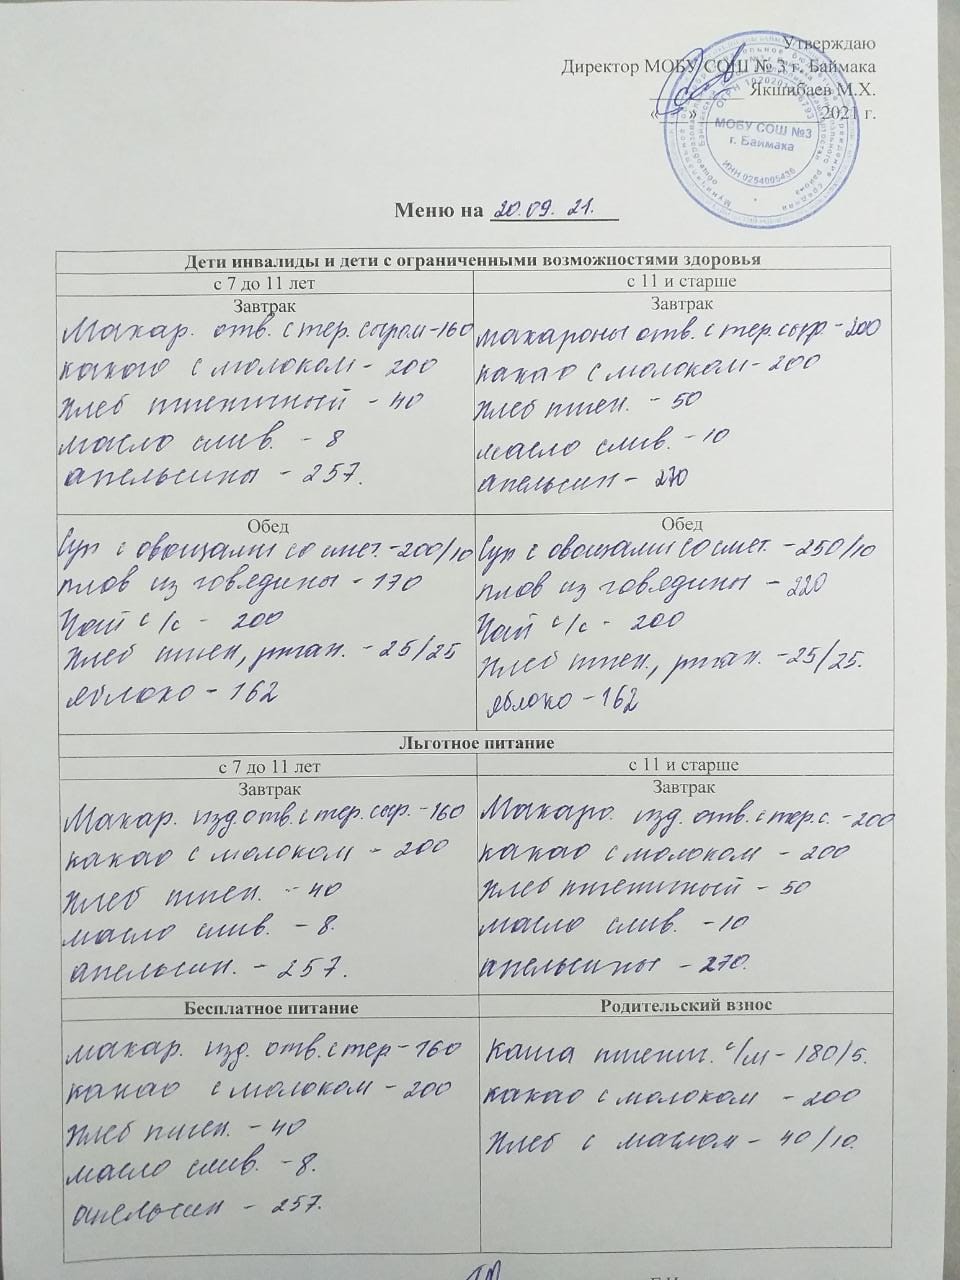 Утверждаю
Директор МОБУ СОШ № 3 г. Баймака
Якшибаев М.Х.
« » 2021 г.
МОБУ СОШ №3
г. Баймака
ИНН 0254005436
Меню на 20.09.21.
Дети инвалиды и дети с ограниченными возможностями здоровья
с 7 до 11 лет
Завтрак
Макар. отв. с тер. сыром-160
какао с молоком - 200
Хлеб пшеничный - 40
масло слив. - 8
апельсины - 257.
с 11 и старше
Завтрак
макароны отв. с тер. сыр - 200
какао с молоком - 200
Хлеб пшен. - 50
масло слив. - 10
апельсин - 270
Обед
Суп с овощами со смет. -200/10
плов из говядины - 170
Чай с/с - 200
Хлеб пшен, ржан. - 25/25
яблоко - 162
Обед
Суп с овощами со смет. -250/10
плов из говядины - 220
Чай с/с - 200
Хлеб пшен., ржан. -25/25.
яблоко - 162
Льготное питание
с 7 до 11 лет
Завтрак
Макар. изд. отв. с тер. сыр. -160
какао с молоком - 200
Хлеб пшен. - 40
масло слив. - 8.
апельсин. - 257.
с 11 и старше
Завтрак
Макаро. изд. отв. с тер. с. -200
какао с молоком - 200
Хлеб пшеничный - 50
масло слив. - 10
апельсины - 270.
Бесплатное питание
макар. изд. отв. с тер - 160
какао с молоком - 200
Хлеб пшен. - 40
масло слив. - 8.
апельсин - 257.
Родительский взнос
Каша пшенич. с/м - 180/5.
какао с молоком - 200
Хлеб с маслом - 40/10.